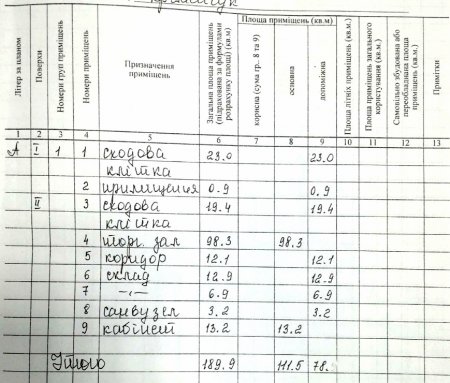 Літер за планом
Поверхи
Номери груп приміщень
Номери приміщень
Призначення приміщень
Загальна площа приміщень (підрахована за формулами розрахунку площі) (кв.м)
Площа приміщень (кв.м)
корисна (сума гр. 8 та 9)
основна
допоміжна
Площа літніх приміщень (кв.м.)
Площа приміщень загального користування (кв.м.)
Самовільно збудована або переобладнана площа приміщень (кв.м.)
Примітки
1 2 3 4 5 6 7 8 9 10 11 12 13
А I 1 1 сходова 23.0 23.0
клітка
2 приміщення 0.9 0.9
II 3 сходова 19.4 19.4
клітка
4 торг. зал 98.3 98.3
5 коридор 12.1 12.1
6 склад 12.9 12.9
7 –"– 6.9 6.9
8 санвузел 3.2 3.2
9 кабінет 13.2 13.2
Итого 189.9 111.5 78.